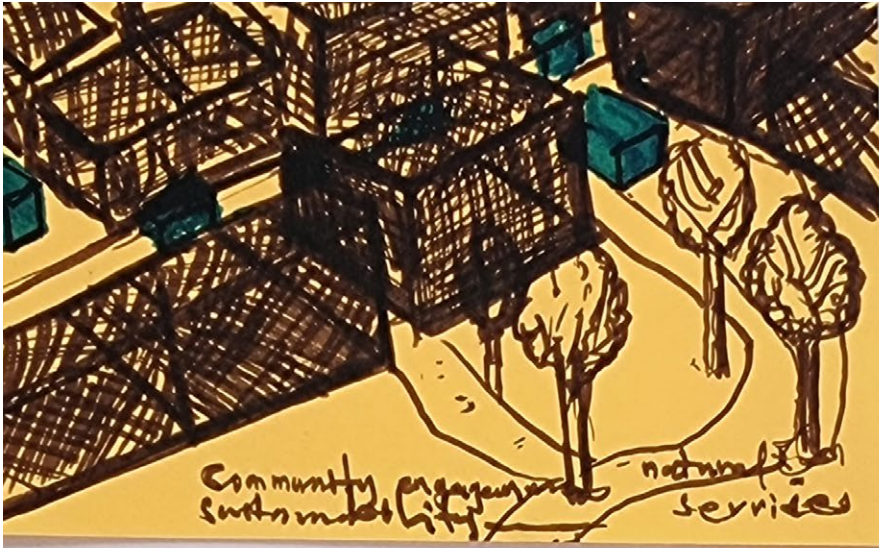 Community engagement
sustainability
natural
services